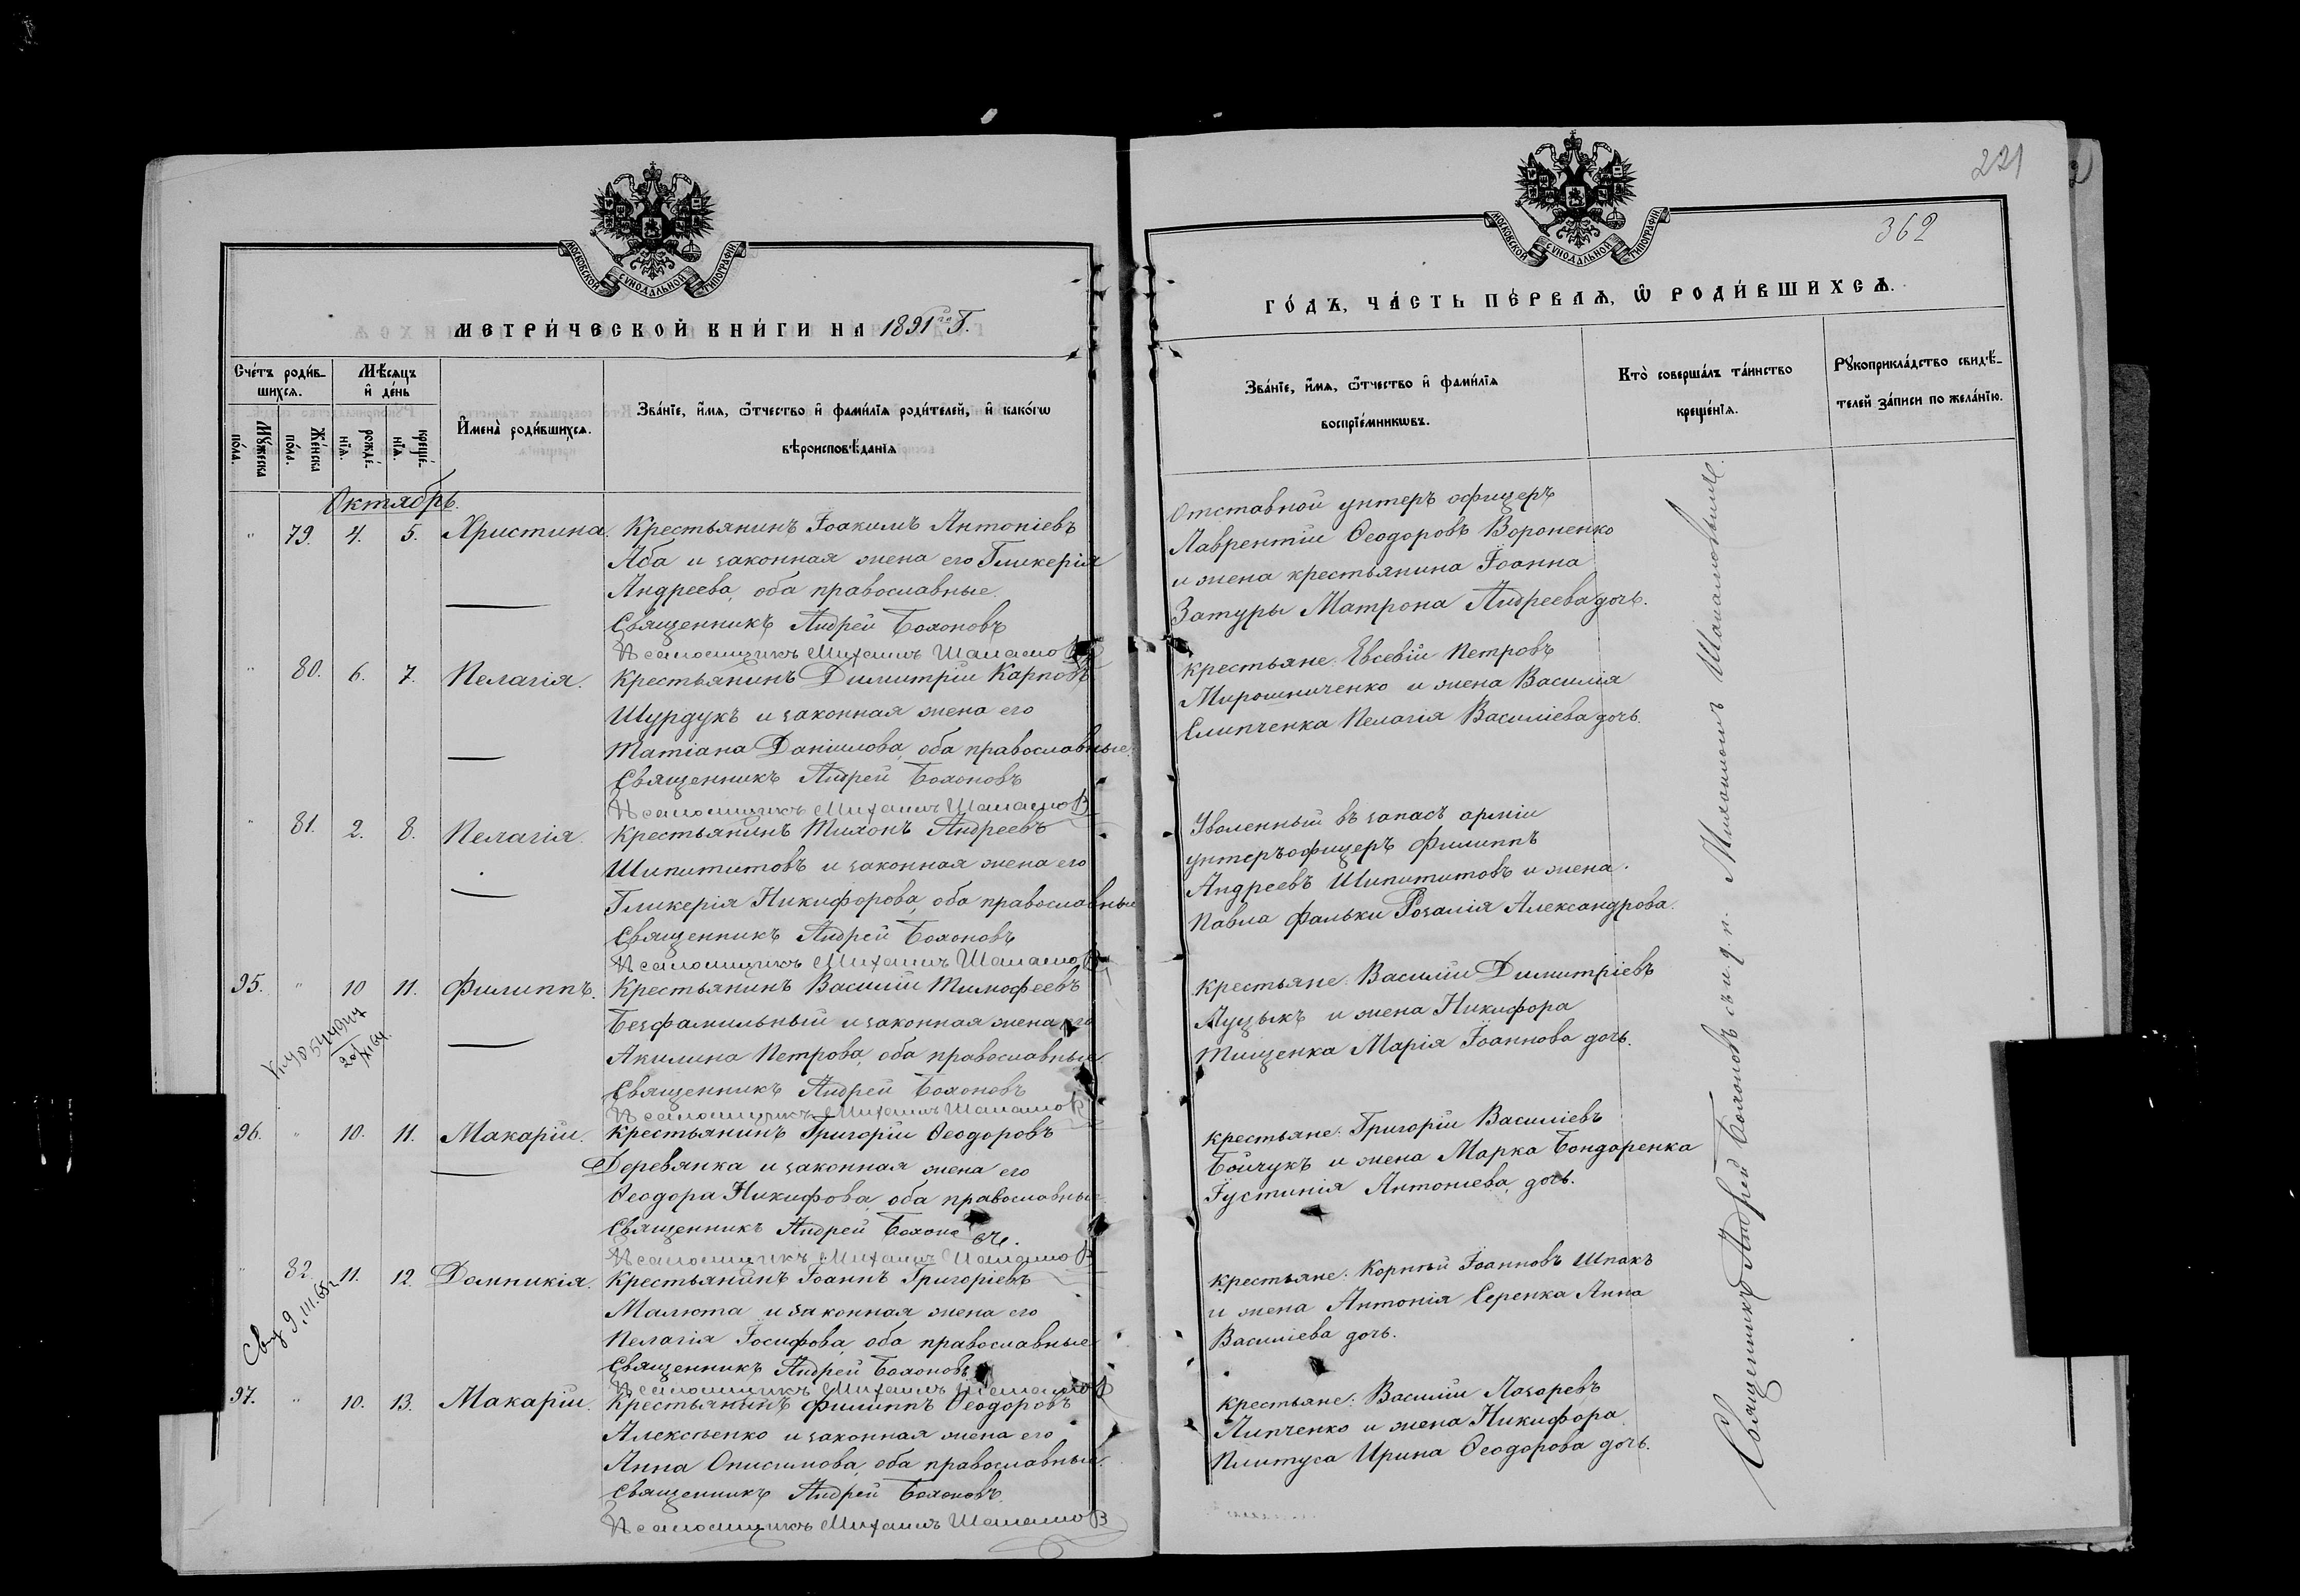 МОСКОВСКОЙ СѴНОДАЛЬНОЙ ТИПОГРАФІИ
МЕТРИ́ЧЕСКОЙ КНИ́ГИ НА 1891 го Г.
Сче́тъ роди́в-
шихсѧ.
Мꙋ́жеска
по́ла.
Же́нска
по́ла.
Мѣ́сѧцъ
и҆ де́нь
рожде́-
нїѧ.
креще́-
нїѧ.
И҆мена̀ роди́вшихсѧ.
Зва́нїе, и҆́мѧ, ѻ҆́тчество и҆ фами́лїѧ роди́телей, и҆ како́гѡ
вѣроисповѣ́данїѧ
Октябрь.
" 79. 4. 5. Христина. Крестьянинъ Іоакимъ Антоніевъ
Аба и законная жена его Гликерія
Андреева, оба православные.
Священникъ Андрей Бохоновъ
Псаломщикъ Михаилъ
" 80. 6. 7. Пелагія. Крестьянинъ Димитрій Карповъ
Шурдукъ и законная жена его
Татіана Даніилова, оба православные.
Священникъ Андрей Бохоновъ
Псаломщикъ Михаилъ
" 81. 2. 8. Пелагія. Крестьянинъ Тихонъ Андреевъ
Шипититовъ и законная жена его
Гликерія Никифорова, оба православные
Священникъ Андрей Бохоновъ
Псаломщикъ Михаилъ
95. " 10 11. Филиппъ. Крестьянинъ Василій Тимофеевъ
Безфамильный и законная жена его
Акилина Петрова, оба православные.
Священникъ Андрей Бохоновъ
Псаломщикъ Михаилъ
96. " 10. 11. Макарій. Крестьянинъ Григорій Ѳеодоровъ
Деревянка и законная жена его
Ѳеодора Никифова, оба православные
Священникъ Андрей Бохоновъ.
Псаломщикъ Михаилъ
" 82. 11. 12. Домникія. Крестьянинъ Іоаннъ Григоріевъ
Малюта и законная жена его
Пелагія Іосифова, оба православные
Священникъ Андрей Бохоновъ
Псаломщикъ Михаилъ
97. " 10. 13. Макарій. Крестьянинъ Филиппъ Ѳеодоровъ
Алексѣенко и законная жена его
Анна Онисимова, оба православные.
Священникъ Андрей Бохоновъ.
Псаломщикъ Михаилъ
221
362
МОСКОВСКОЙ СѴНОДАЛЬНОЙ ТИПОГРАФІИ
ГО́ДЪ, ЧА́СТЬ ПЕ́РВАѦ, Ѽ РОДИ́ВШИХСѦ.
Зва́нїе, и҆́мѧ, ѻ҆́тчество и҆ фами́лїѧ
воспрїе́мникѡвъ.
Кто̀ соверша́лъ та́инство
креще́нїѧ.
Рꙋкоприкла́дство свидѣ́-
телей за́писи по жела́нїю.
Отставной унтеръ офицеръ
Лаврентій Ѳеодоровъ Вороненко
и жена крестьянина Іоанна
Затуры Матрона Андреева дочь.
Крестьяне: Евсевій Петровъ
Мирошниченко и жена Василія
Слипченка Пелагія Василіева дочь.
Уволенный въ запасъ арміи
унтеръофицеръ Филиппъ
Андреевъ Шипититовъ и жена
Павла Фальки Розалія Александрова.
Крестьяне: Василій Димитріевъ
Музыкъ и жена Никифора
Тищенка Марія Іоаннова дочь.
Крестьяне: Григорій Василіевъ
Бойчукъ и жена Марка Бондаренка
Іустинія Антоніева, дочь.
Крестьяне: Корній Іоанновъ Шпакъ
и жена Антонія Серенка Анна
Василіева дочь.
Крестьяне: Василій Лазаревъ
Липченко и жена Никифора
Плитуса Ирина Ѳеодорова дочь.
Священникъ Андрей Бохоновъ съ и.д.п. Михаиломъ